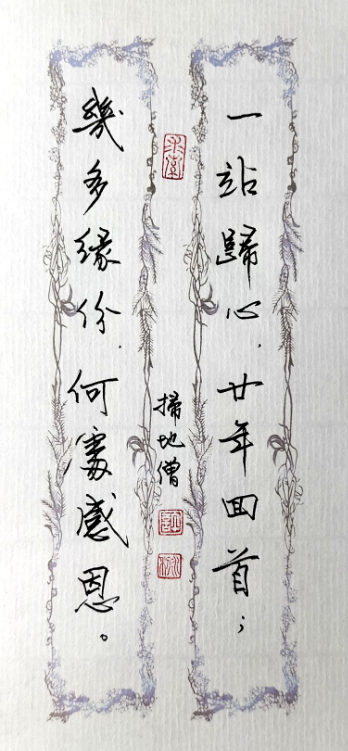 一站歸心．廿年回首；
幾多緣份．何處感恩。
掃地僧